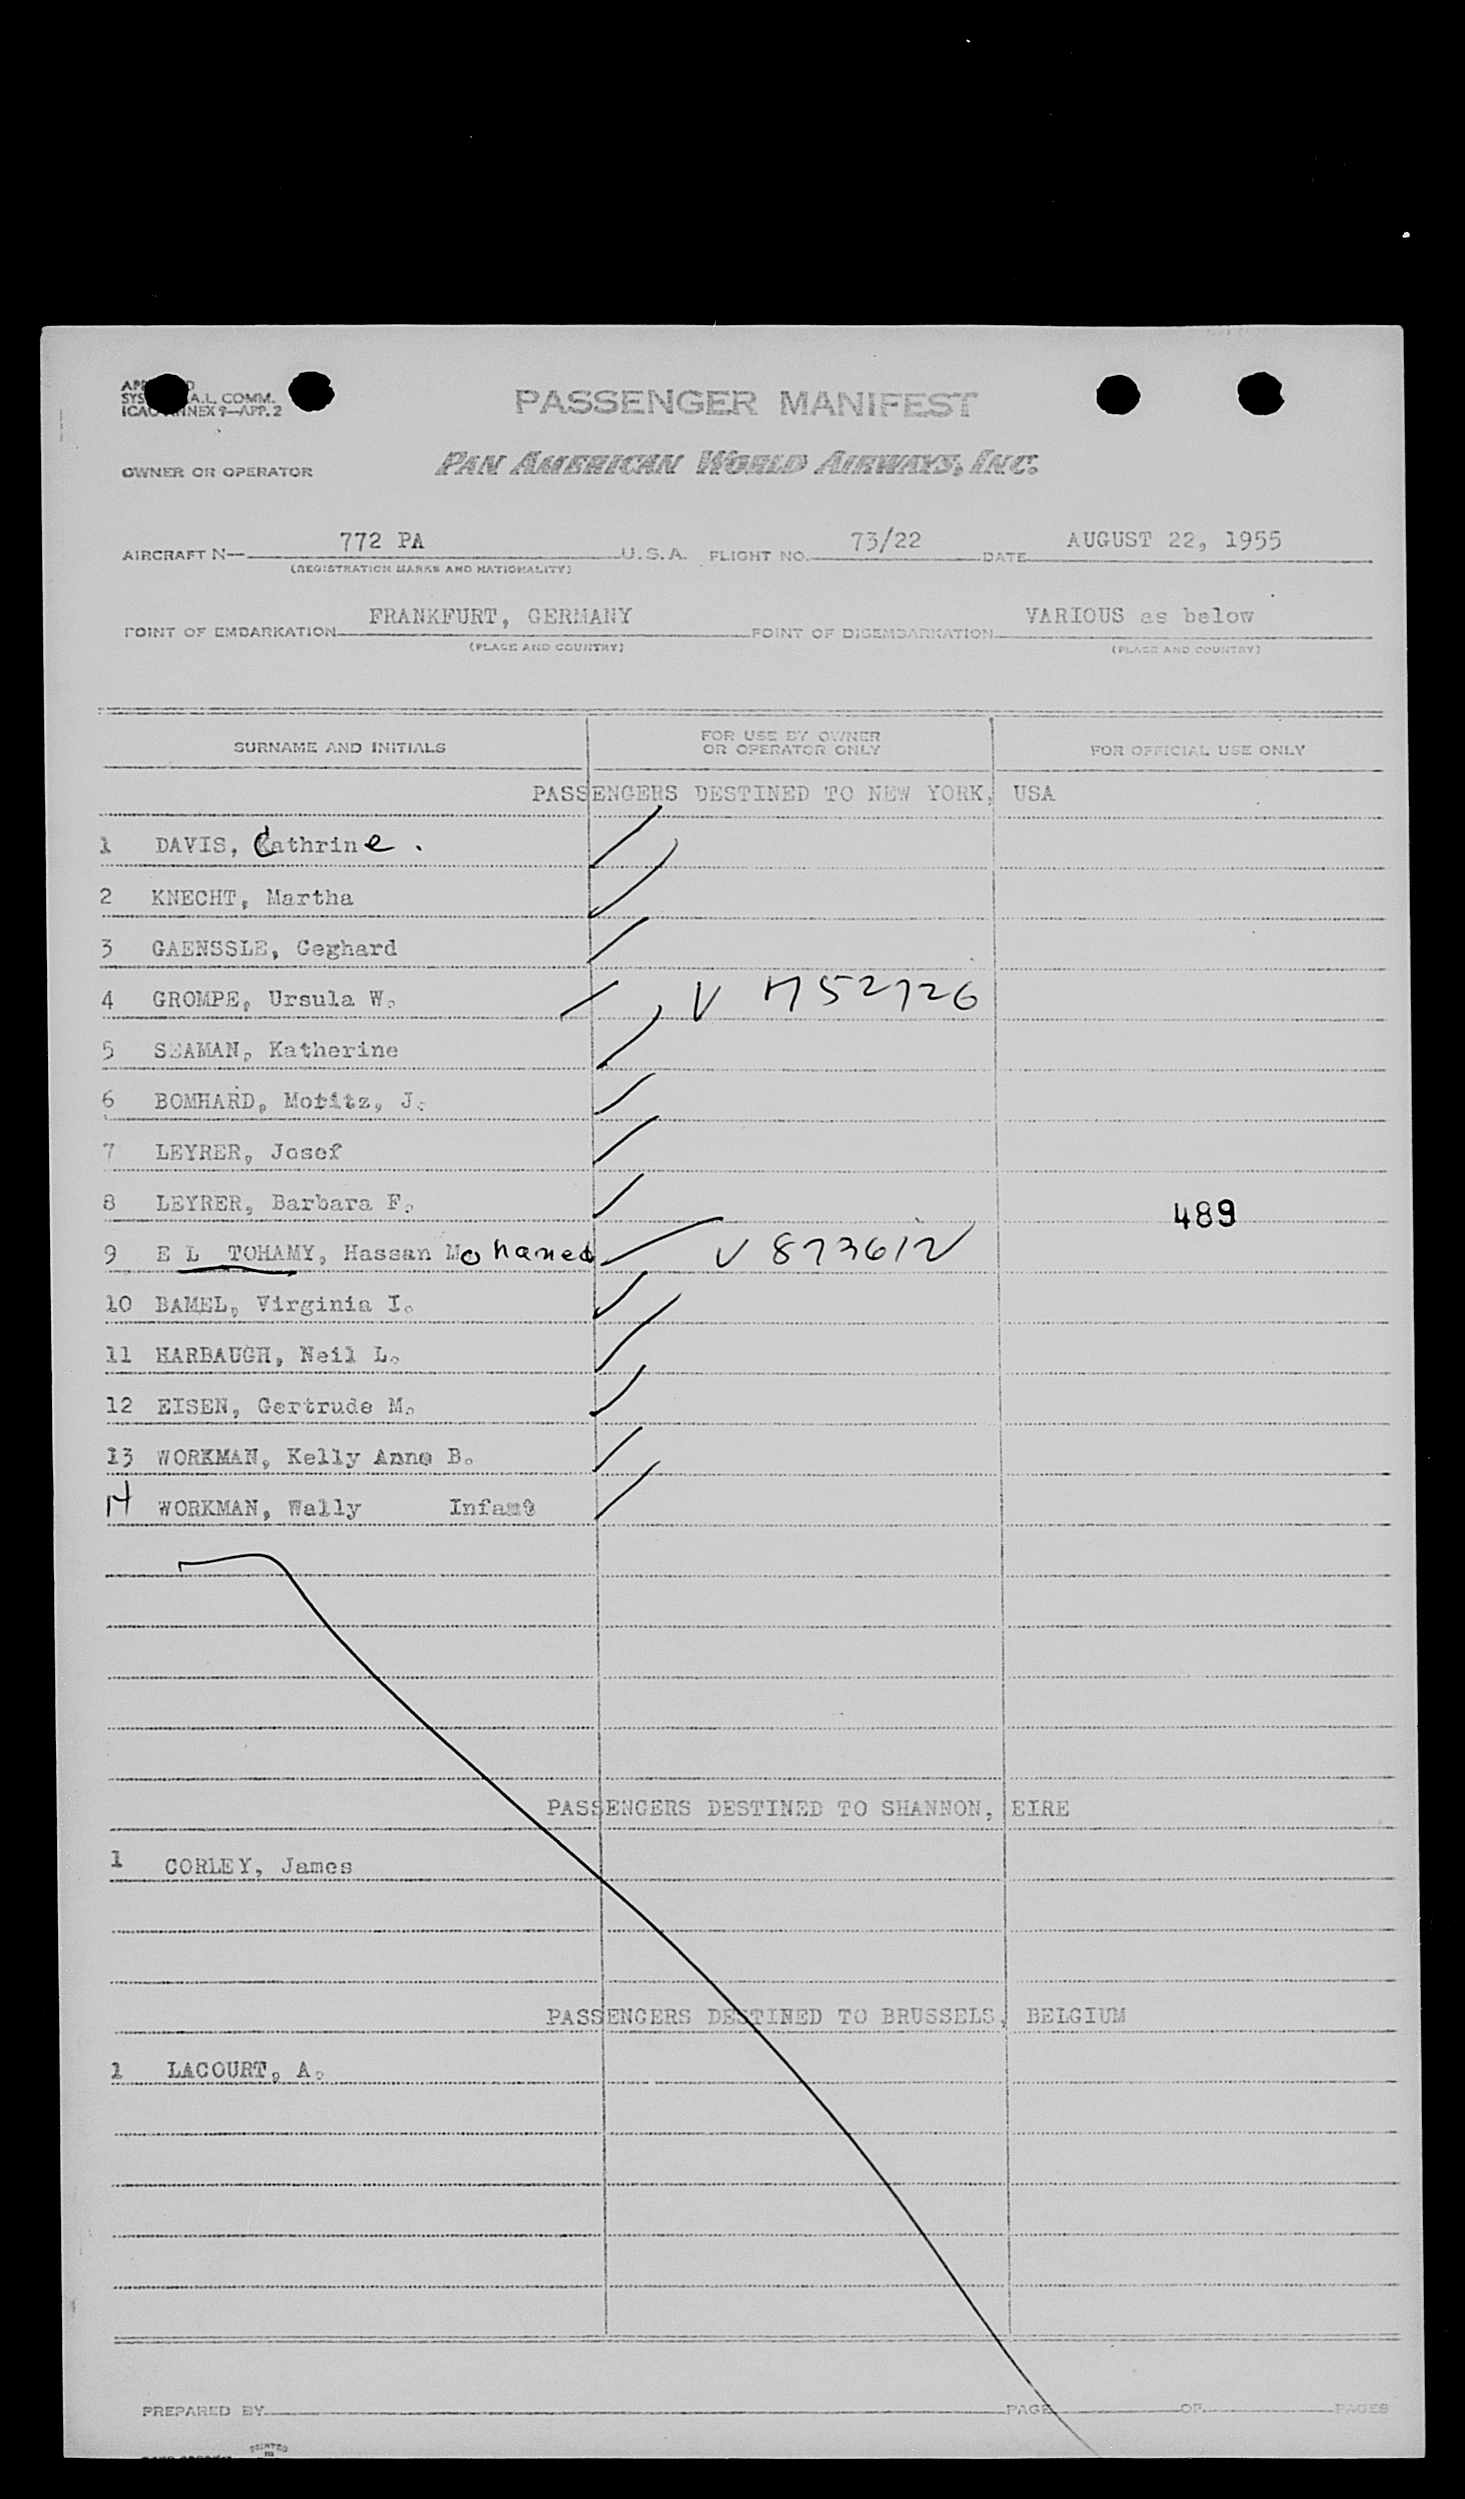 PASSENGER MANIFEST
A.L. COMM.
ICAO ANNEX 9—APP. 2
OWNER OR OPERATOR PAN AMERICAN WORLD AIRWAYS, INC.
AIRCRAFT N— 772 PA U.S.A. FLIGHT NO. 73/22 DATE AUGUST 22, 1955
(REGISTRATION MARKS AND NATIONALITY)
POINT OF EMBARKATION FRANKFURT, GERMANY POINT OF DISEMBARKATION VARIOUS as below
(PLACE AND COUNTRY) (PLACE AND COUNTRY)
SURNAME AND INITIALS FOR USE BY OWNER OR OPERATOR ONLY FOR OFFICIAL USE ONLY
PASSENGERS DESTINED TO NEW YORK, USA
1 DAVIS, Cathrine.
2 KNECHT, Martha
3 GAENSSLE, Geghard
4 GROMPE, Ursula W. V
5 SEAMAN, Katherine
6 BOMHARD, Moritz, J.
7 LEYRER, Josef
8 LEYRER, Barbara F. 489
9 EL TOHAMY, Hassan Mohamed V
10 BAMEL, Virginia I.
11 HARBAUGH, Neil L.
12 EISEN, Gertrude M.
13 WORKMAN, Kelly Anne B.
14 WORKMAN, Wally Infant
PASSENGERS DESTINED TO SHANNON, EIRE
1 CORLEY, James
PASSENGERS DESTINED TO BRUSSELS, BELGIUM
1 LACOURT, A.
PREPARED BY PAGE OF PAGES
PRINTED